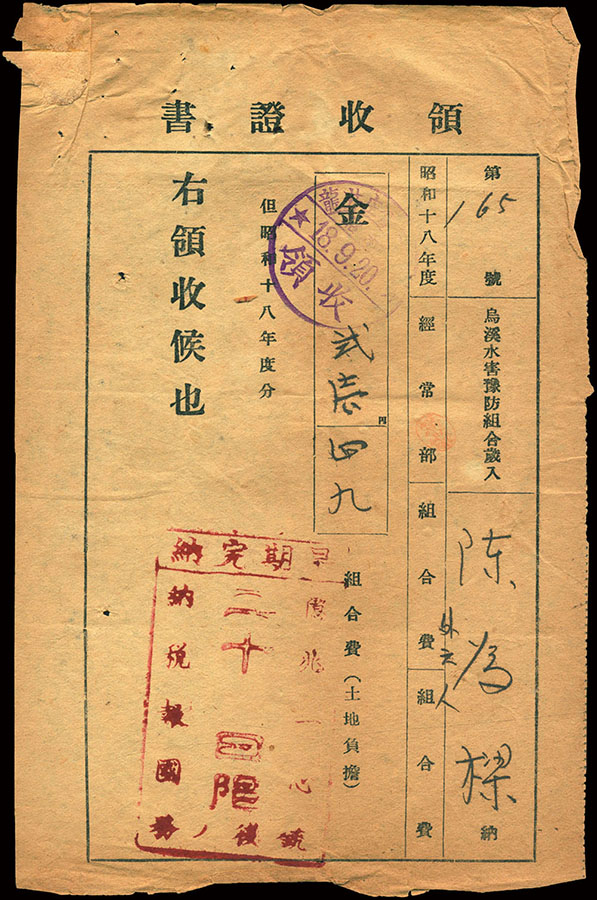 領收證書
第165號
烏溪水害豫防組合歲入
陳為樑納
外六人
昭和十八年度
經常部
組合費
組合費
金弐壱円四九
組合費(土地負擔)
但昭和十八年度分
右領收候也
18.9.20.
領收
早期完納
億兆一心
二十日限
納税報國
銃後ノ務